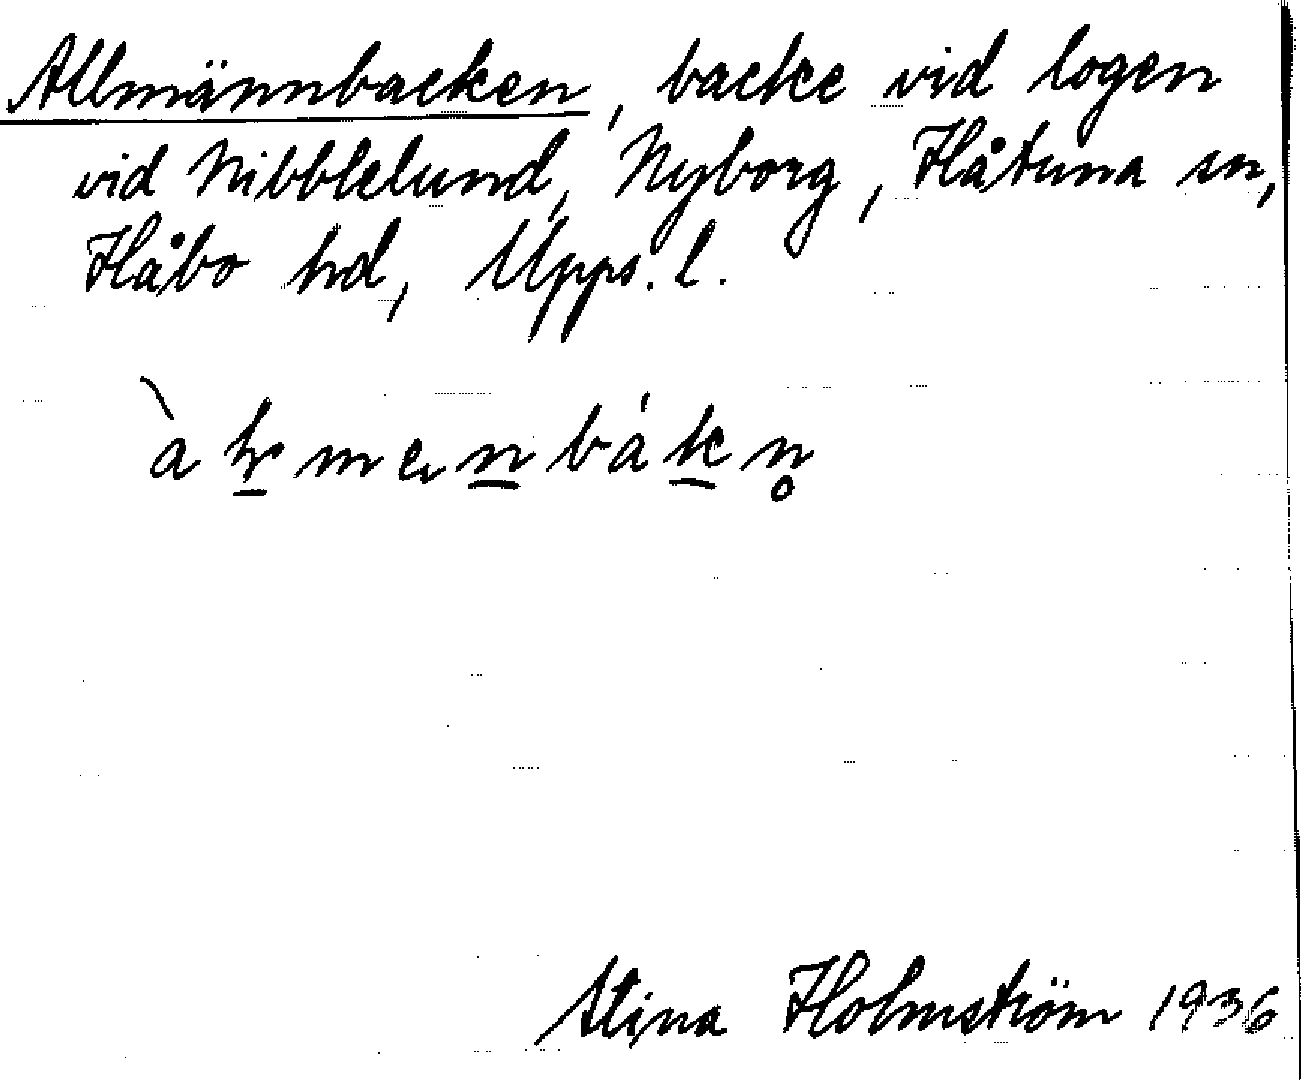 Allmännbacken, backe vid logen
vid Nibblelund, Nyborg, Håtuna sn,
Håbo hd, Upps. l.
Stina Holmström 1936